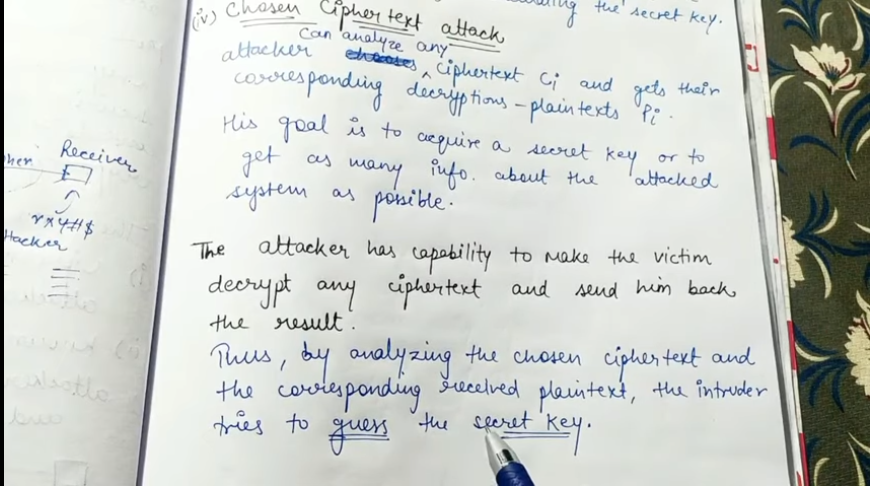 the secret key.
(iv) Chosen Ciphertext attack
can analyze any
attacker ciphertext Ci and gets their
corresponding decryptions - plaintexts Pi.
His goal is to acquire a secret key or to
get as many info. about the attacked
system as possible.
The attacker has capability to make the victim
decrypt any ciphertext and send him back
the result.
Thus, by analyzing the chosen ciphertext and
the corresponding received plaintext, the intruder
tries to guess the secret key.
Receiver